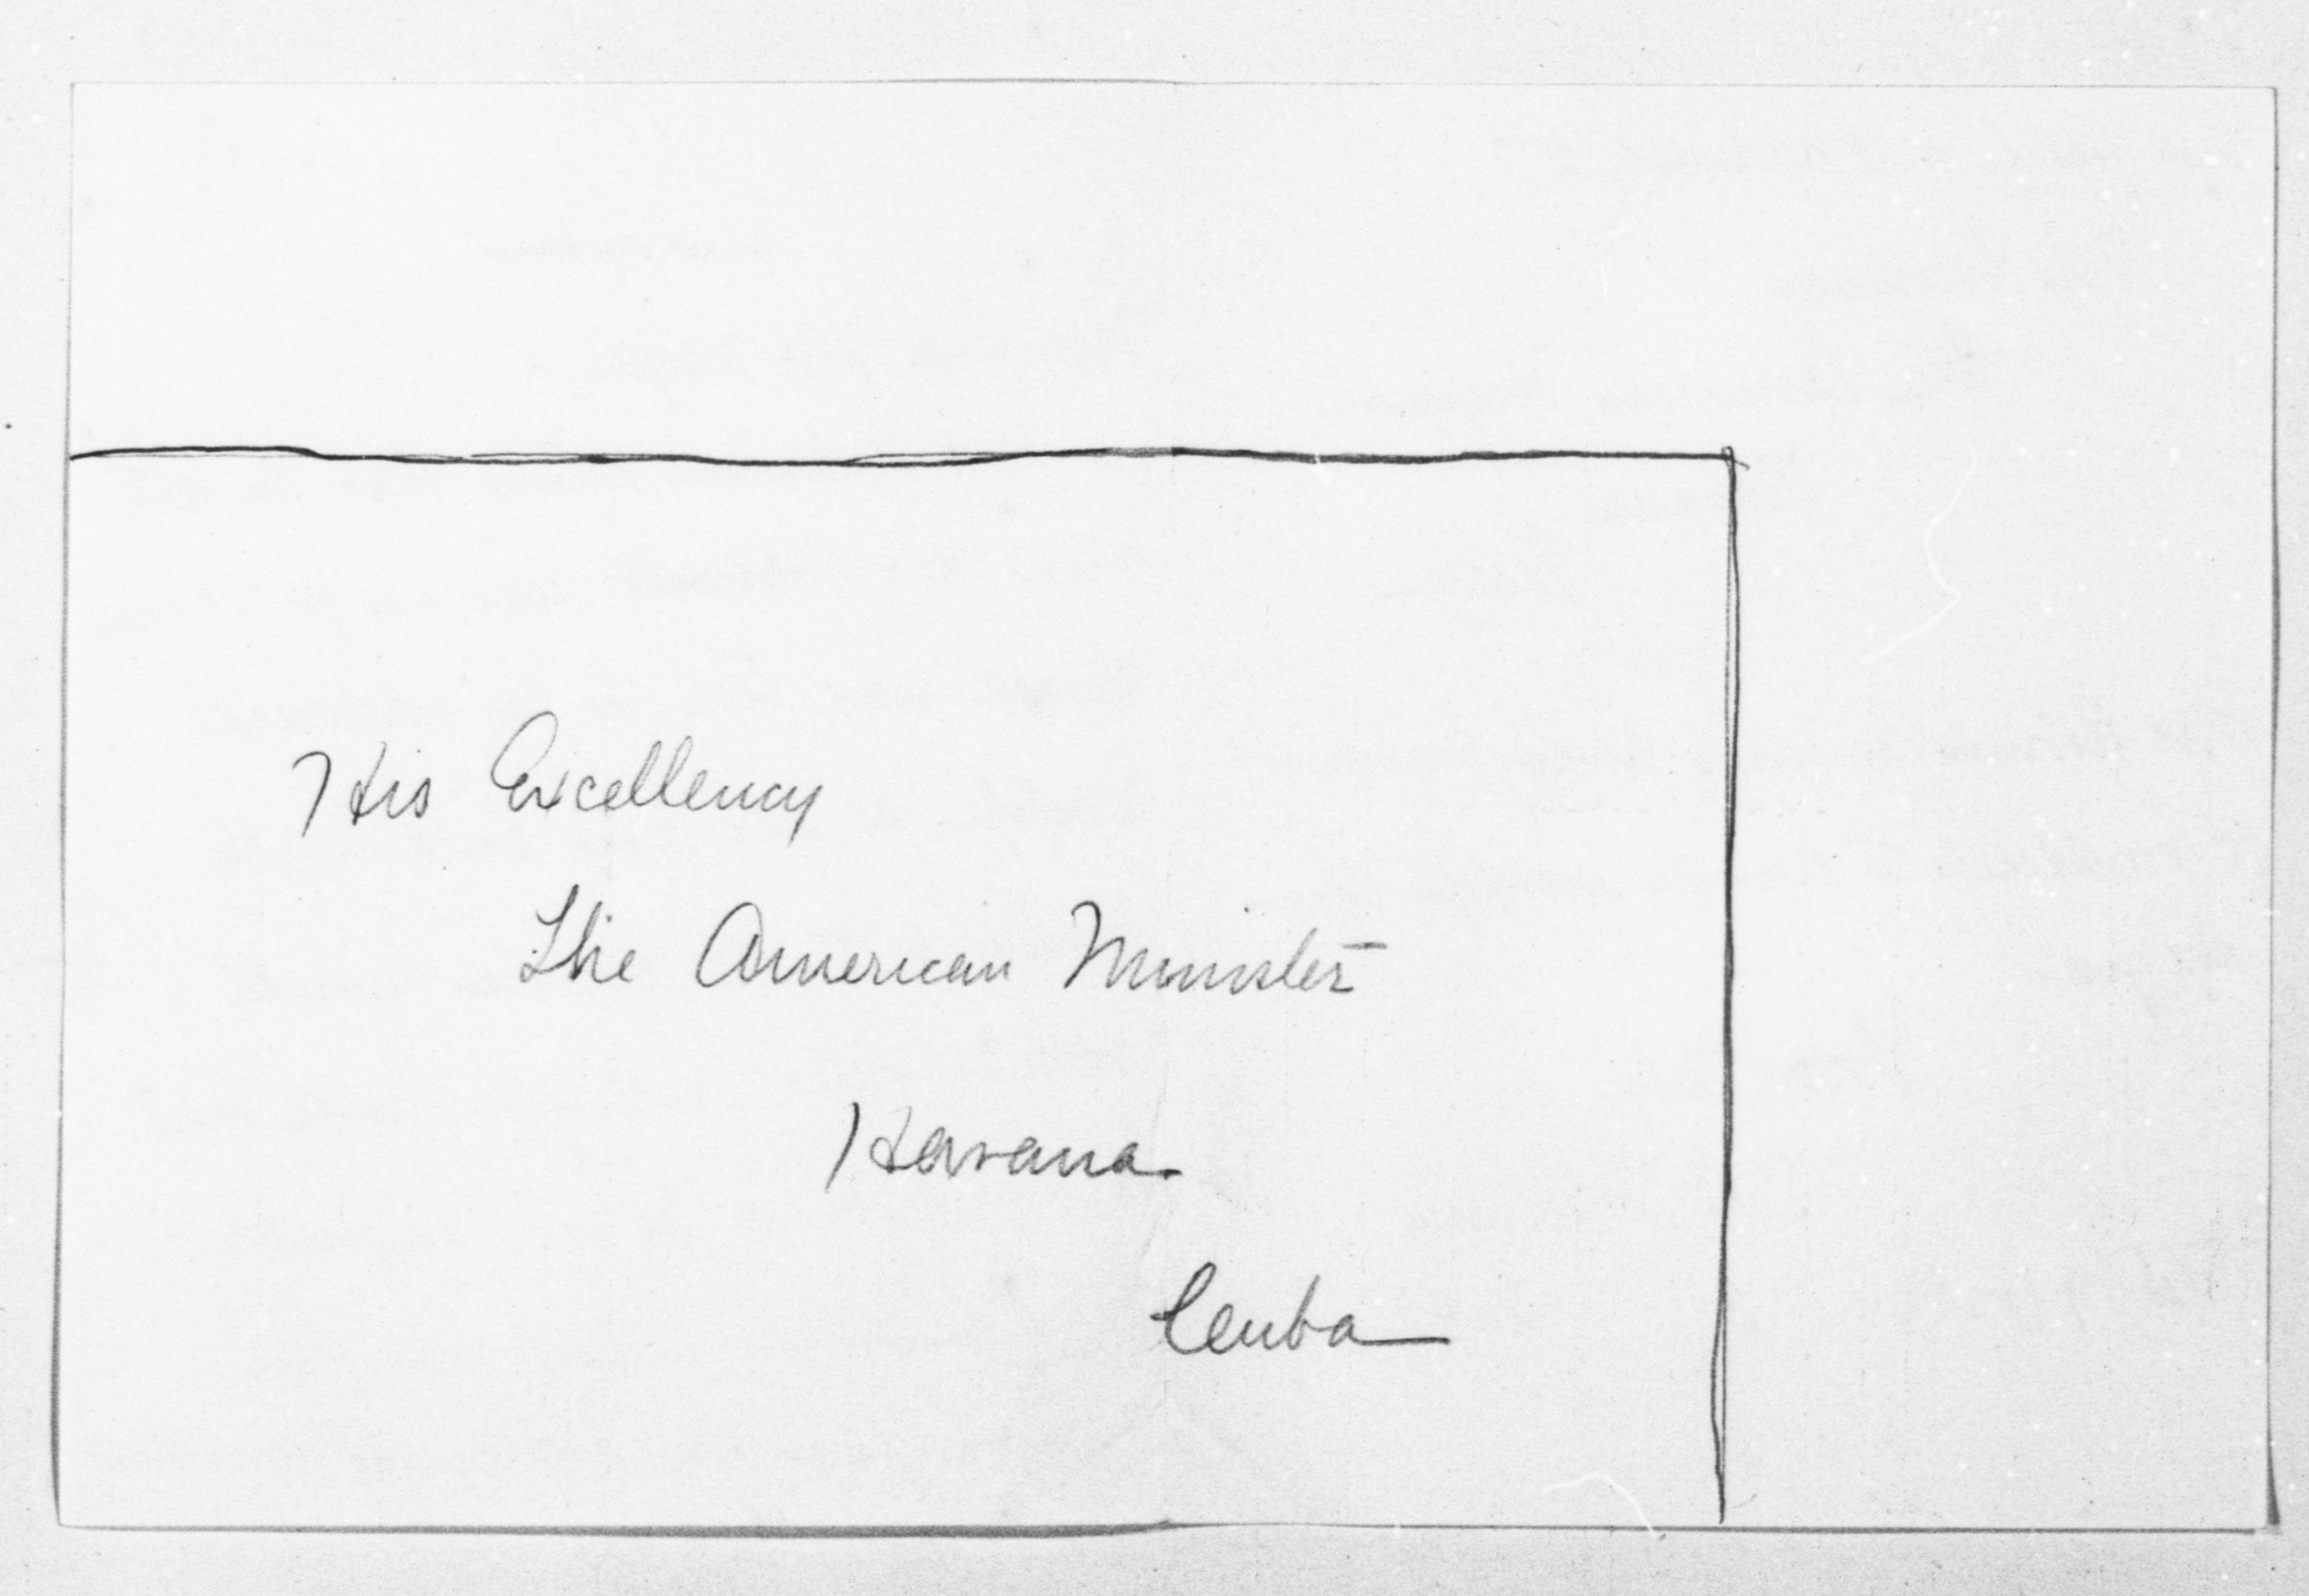 His Excellency
The American Minister
Havana
Cuba